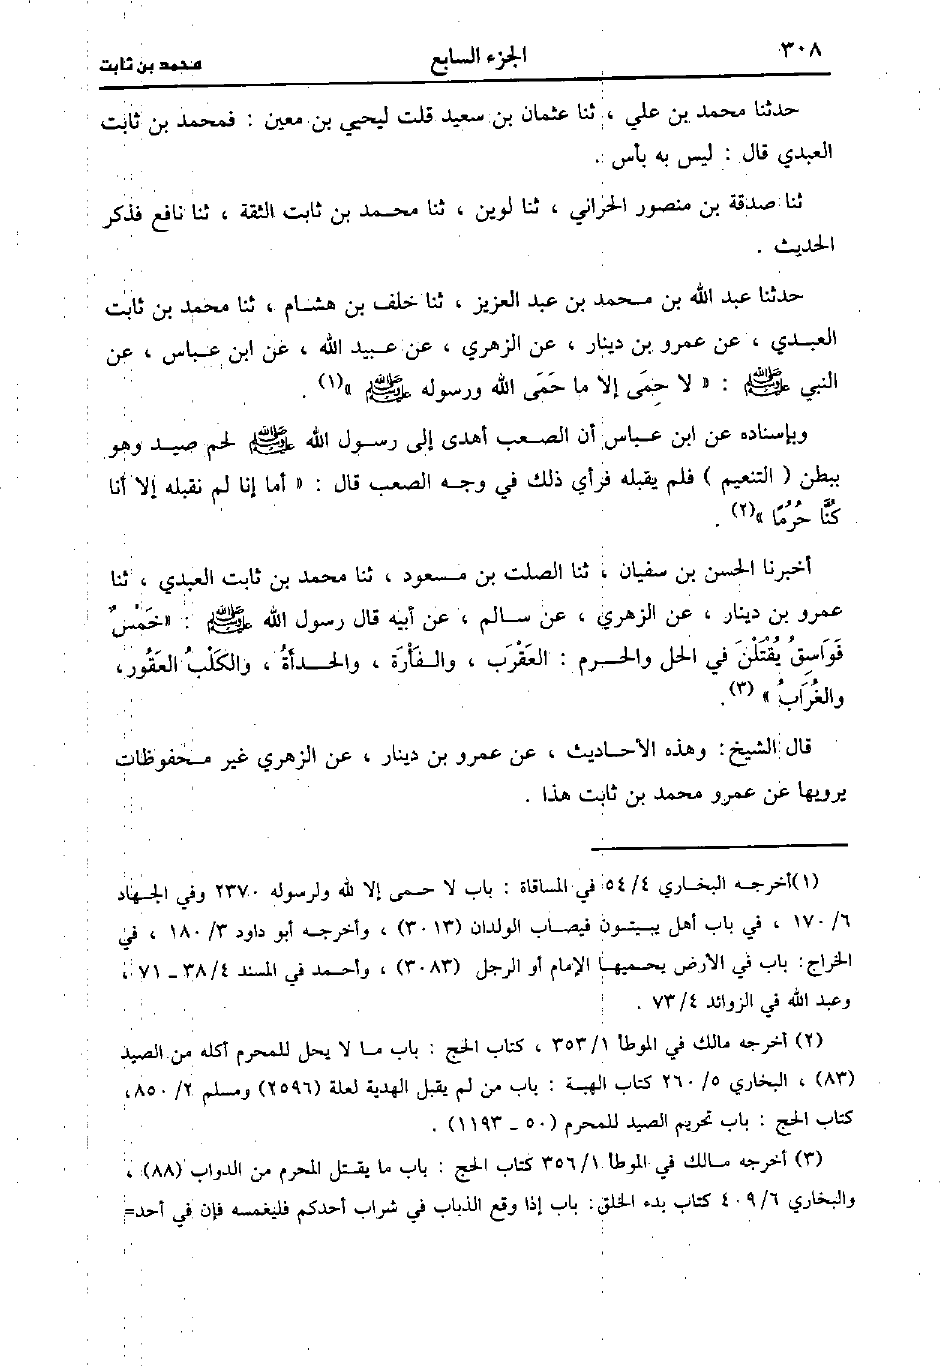 ٣٠٨ الجزء السابع محمد بن ثابت
حدثنا محمد بن علي ، ثنا عثمان بن سعيد قلت ليحيي بن معين : فمحمد بن ثابت
العبدي قال : ليس به بأس .
ثنا صدقة بن منصور الحراني ، ثنا لوين ، ثنا محمد بن ثابت الثقة ، ثنا نافع فذكر
الحديث .
حدثنا عبد الله بن محمد بن عبد العزيز ، ثنا خلف بن هشام ، ثنا محمد بن ثابت
العبدي ، عن عمرو بن دينار ، عن الزهري ، عن عبيد الله ، عن ابن عباس ، عن
النبي ﷺ : « لا حِمَى إلا ما حَمَى الله ورسوله ﷺ »(١) .
وبإسناده عن ابن عباس أن الصعب أهدى إلى رسول الله ﷺ لحم صيد وهو
ببطن ( التنعيم ) فلم يقبله فرأي ذلك في وجه الصعب قال : « أما إنا لم نقبله إلا أنا
كُنَّا حُرُمًا »(٢) .
أخبرنا الحسن بن سفيان ، ثنا الصلت بن مسعود ، ثنا محمد بن ثابت العبدي ، ثنا
عمرو بن دينار ، عن الزهري ، عن سالم ، عن أبيه قال رسول الله ﷺ : «خَمْسٌ
فَوَاسِقُ يُقْتَلْنَ في الحل والحرم : العَقْرَب ، والفَأْرَة ، والحدأةُ ، والكَلْبُ العَقُور،
والغُرَابُ » (٣).
قال الشيخ: وهذه الأحاديث ، عن عمرو بن دينار ، عن الزهري غير محفوظات
يرويها عن عمرو محمد بن ثابت هذا .
(١)أخرجه البخاري ٥٤/٤ في المساقاة : باب لا حمى إلا لله ولرسوله ٢٣٧٠ وفي الجهاد
١٧٠/٦ ، في باب أهل يبيتون فيصاب الولدان (٣٠١٣) ، وأخرجه أبو داود ١٨٠/٣ ، في
الخراج: باب في الأرض يحميها الإمام أو الرجل (٣٠٨٣) ، وأحمد في المسند ٣٨/٤ ـ ٧١ ،
وعبد الله في الزوائد ٧٣/٤ .
(٢) أخرجه مالك في الموطأ ٣٥٣/١ ، كتاب الحج : باب ما لا يحل للمحرم أكله من الصيد
(٨٣) ، البخاري ٢٦٠/٥ كتاب الهبة : باب من لم يقبل الهدية لعلة (٢٥٩٦) ومسلم ٨٥٠/٢،
كتاب الحج : باب تحريم الصيد للمحرم (٥٠ ـ ١١٩٣) .
(٣) أخرجه مالك في الموطأ ٣٥٦/١ كتاب الحج : باب ما يقتل المحرم من الدواب (٨٨) ،
والبخاري ٤٠٩/٦ كتاب بدء الخلق: باب إذا وقع الذباب في شراب أحدكم فليغمسه فإن في أحد=